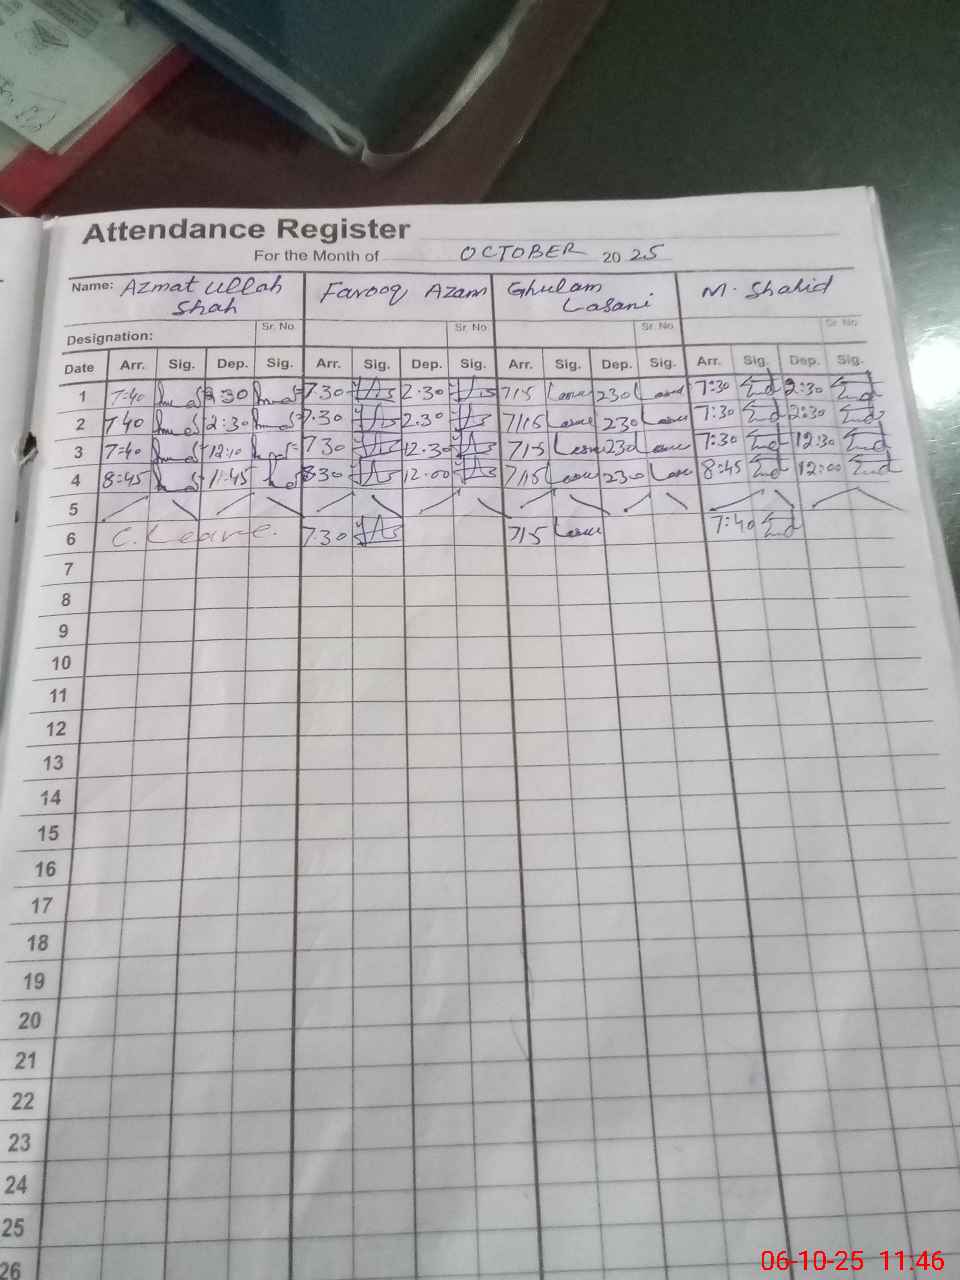 Attendance Register
For the Month of OCTOBER 2025
Name: Azmat Ullah Shah Farooq Azam Ghulam Lasani M. Shahid
Designation: Sr. No. Sr. No. Sr. No. Sr. No.
Date Arr. Sig. Dep. Sig. Arr. Sig. Dep. Sig. Arr. Sig. Dep. Sig. Arr. Sig. Dep. Sig.
1 7:40 2:30 7.30 2.30 7/15 230 7:30 2:30
2 7:40 2:30 7.30 2.30 7/15 230 7:30 2:30
3 7:40 12:10 7.30 12.30 7/15 230 7:30 12:30
4 8:45 11:45 8.30 12.00 7/15 230 8:45 12:00
5
6 C. Leave. 7.30 715 7:40
7
8
9
10
11
12
13
14
15
16
17
18
19
20
21
22
23
24
25
26
06-10-25 11:46